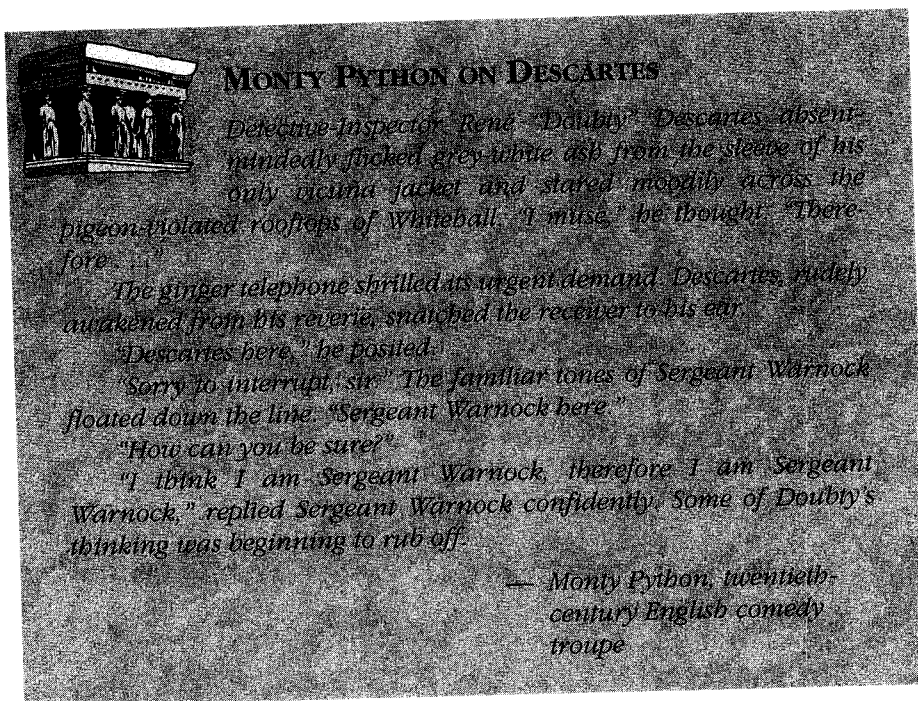 MONTY PYTHON ON DESCARTES
Detective-Inspector René "Doubty" Descartes absent-
mindedly flicked grey-white ash from the sleeve of his
only vicuna jacket and stared moodily across the
pigeon-violated rooftops of Whitehall. "I muse," he thought. "There-
fore . . ."
The ginger telephone shrilled its urgent demand. Descartes, rudely
awakened from his reverie, snatched the receiver to his ear.
"Descartes here," he posited.
"Sorry to interrupt, sir." The familiar tones of Sergeant Warnock
floated down the line. "Sergeant Warnock here."
"How can you be sure?"
"I think I am Sergeant Warnock, therefore I am Sergeant
Warnock," replied Sergeant Warnock confidently. Some of Doubty's
thinking was beginning to rub off.
— Monty Python, twentieth-
century English comedy
troupe